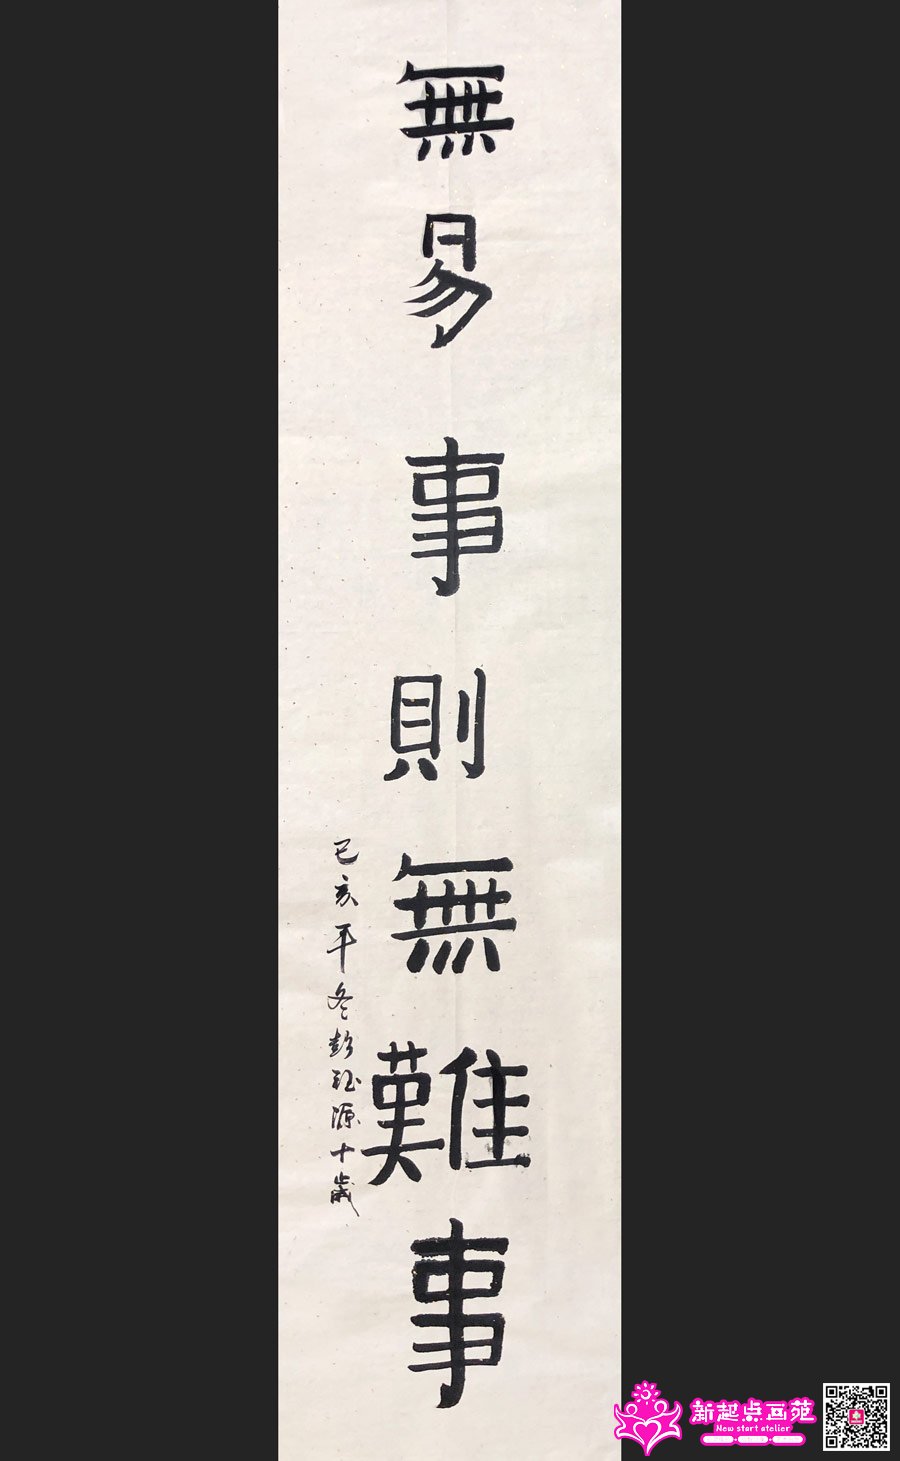 無易事則無難事
己亥年冬彭珏源十歲
新起点画苑
New start atelier